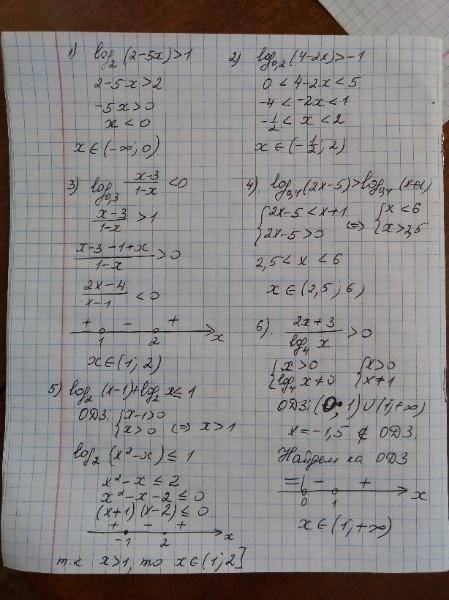 1) log₂(2-5x)>1
2-5x>2
-5x>0
x<0
x∈(-∞;0)
2) log₀,₂(4-2x)>-1
0<4-2x<5
-4<-2x<1
-1/2<x<2
x∈(-1/2;2)
3) log₀,₃ (x-3)/(1-x) <0
(x-3)/(1-x) >1
(x-3-1+x)/(1-x) >0
(2x-4)/(x-1) <0
+ - +
1 2 x
x∈(1;2)
4). log₀,₄(2x-5)>log₀,₄(x+1)
{2x-5<x+1 {x<6
{2x-5>0 <=> {x>2,5
2,5<x<6
x∈(2,5;6)
5) log₂(x-1)+log₂x≤1
ОДЗ: {x-1>0
{x>0 <=> x>1
log₂(x²-x)≤1
x²-x≤2
x²-x-2≤0
(x+1)(x-2)≤0
+ - +
-1 2 x
т.к x>1, то x∈(1;2]
6). (2x+3)/(log₄ x) >0
{x>0 {x>0
{log₄x≠0 {x≠1
ОДЗ: (0;1)∪(1;+∞)
x=-1,5 ∉ ОДЗ.
Найдем на ОДЗ
- +
0 1 x
x∈(1,+∞)